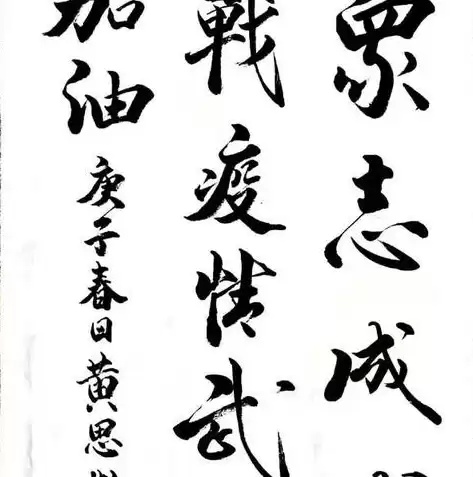 眾志成
戰疫情武
加油
庚子春日黃思